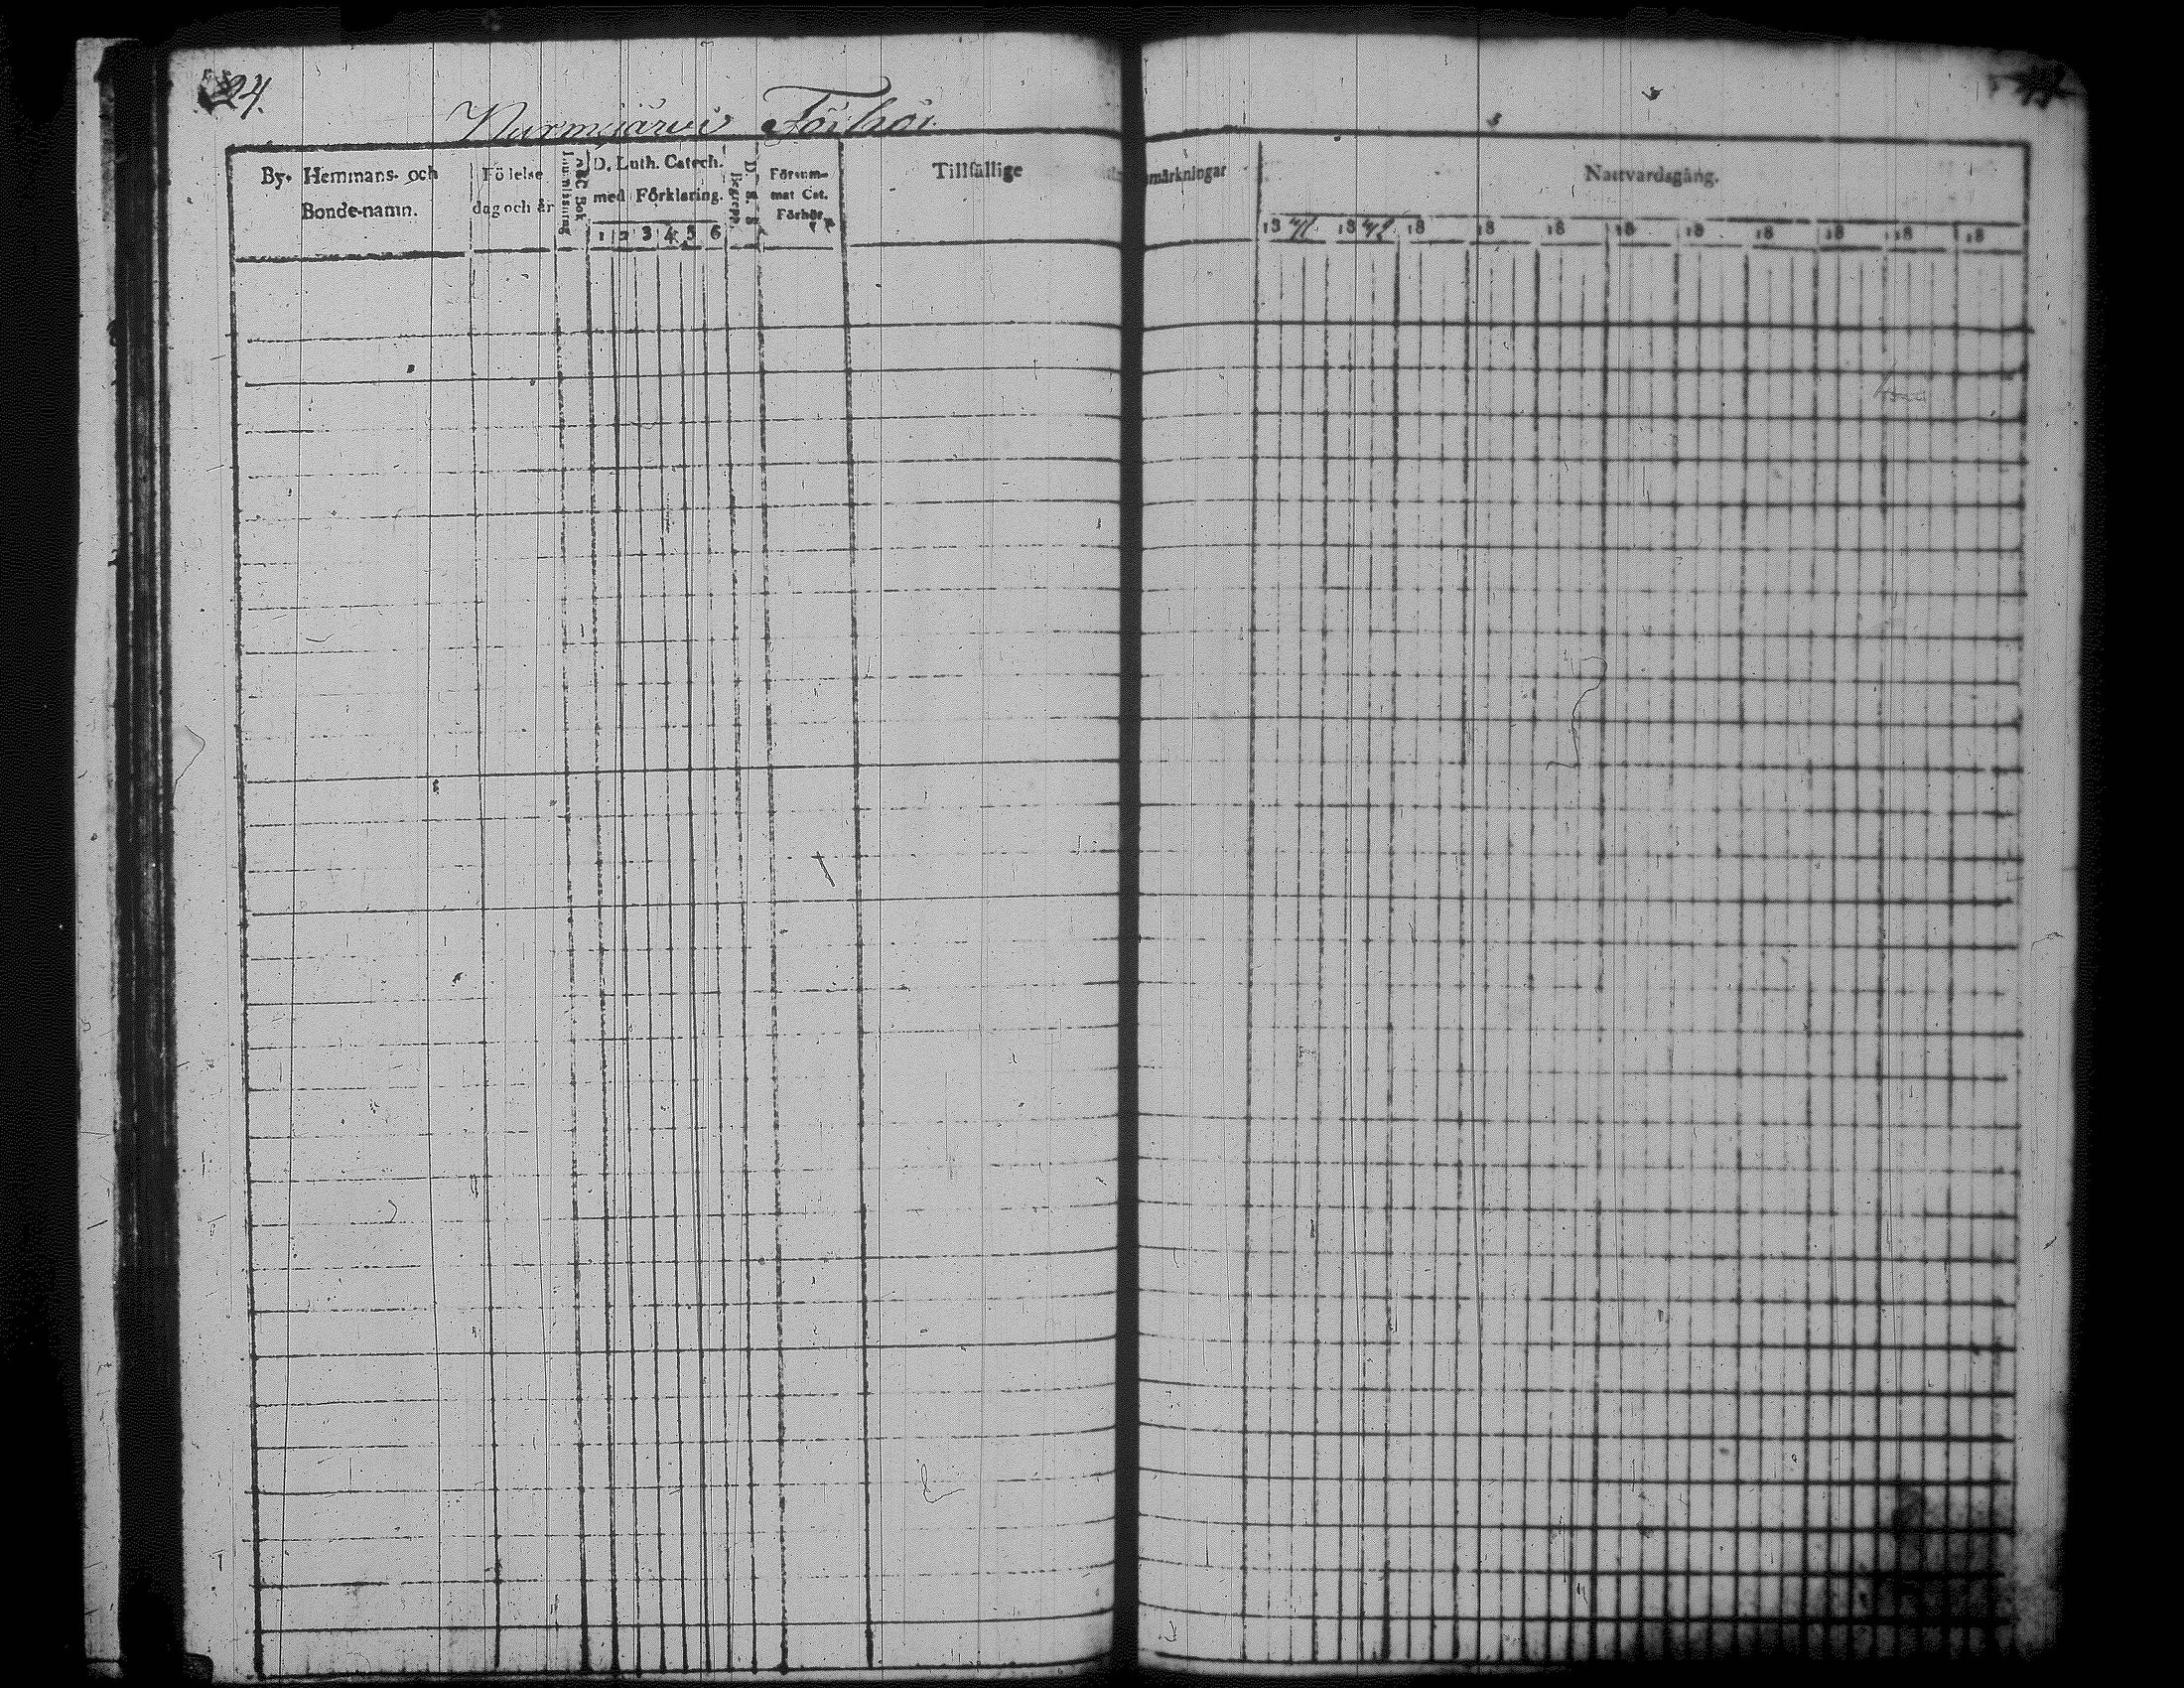 24.
Nurmijärvi Förhör.
By- Hemmans- och
Bonde-namn.
Födelse
dag och år
ABC Bok
D. Luth. Catech.
med Förklaring.
1 2 3 4 5 6
D. S. S.
Begrepp.
Försum-
mat Cat.
Förhör
Tillfällige
märkningar
Nattvardsgång.
18 41 18 42 18 18 18 18 18 18 18 18 18